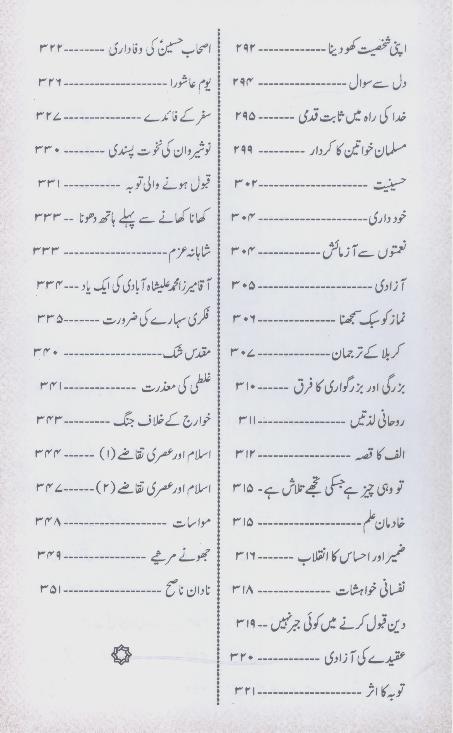 اپنی شخصیت کھو دینا ---------- ۲۹۲
دل سے سوال ---------- ۲۹۴
خدا کی راہ میں ثابت قدمی ---------- ۲۹۵
مسلمان خواتین کا کردار ---------- ۲۹۹
حسینیت ---------- ۳۰۲
خود داری ---------- ۳۰۴
نعمتوں سے آزمائش ---------- ۳۰۴
آزادی ---------- ۳۰۵
نماز کو سبک سمجھنا ---------- ۳۰۶
کربلا کے ترجمان ---------- ۳۰۷
بزرگی اور بزرگواری کا فرق ---------- ۳۱۰
روحانی لذتیں ---------- ۳۱۱
الف کا قصہ ---------- ۳۱۲
تو وہی چیز ہے جسکی تجھے تلاش ہے - ۳۱۵
خادمان علم ---------- ۳۱۵
ضمیر اور احساس کا انقلاب ---------- ۳۱۶
نفسانی خواہشات ---------- ۳۱۸
دین قبول کرنے میں کوئی جبر نہیں -- ۳۱۹
عقیدے کی آزادی ---------- ۳۲۰
توبہ کا اثر ---------- ۳۲۱
اصحاب حسینؑ کی وفاداری ---------- ۳۲۲
یوم عاشورا ---------- ۳۲۶
سفر کے فائدے ---------- ۳۲۷
نوشیروان کی نخوت پسندی ---------- ۳۳۰
قبول ہونے والی توبہ ---------- ۳۳۱
کھانا کھانے سے پہلے ہاتھ دھونا -- ۳۳۳
شاہانہ عزم ---------- ۳۳۳
آقا میرزا محمد علیشاہ آبادی کی ایک یاد --- ۳۳۴
فکری سہارے کی ضرورت ---------- ۳۳۵
مقدس شک ---------- ۳۴۰
غلطی کی معذرت ---------- ۳۴۱
خوارج کے خلاف جنگ ---------- ۳۴۳
اسلام اور عصری تقاضے (۱) ------ ۳۴۴
اسلام اور عصری تقاضے (۲) ------ ۳۴۷
مواسات ---------- ۳۴۸
جھوٹے مرثیے ---------- ۳۴۹
نادان ناصح ---------- ۳۵۱